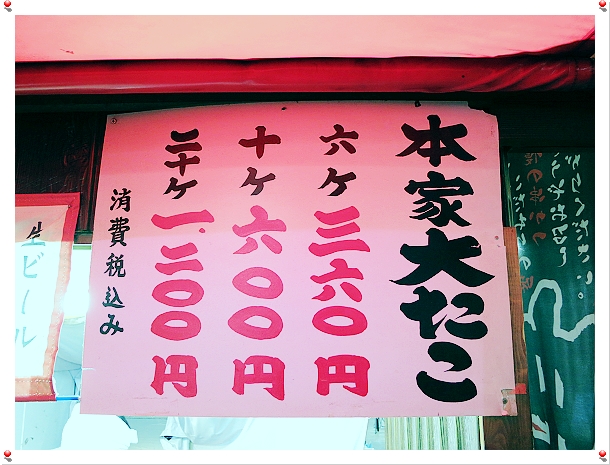 本家大たこ
六ケ 三六〇円
十ケ 六〇〇円
二十ケ 一、二〇〇円
消費税込み
生ビール